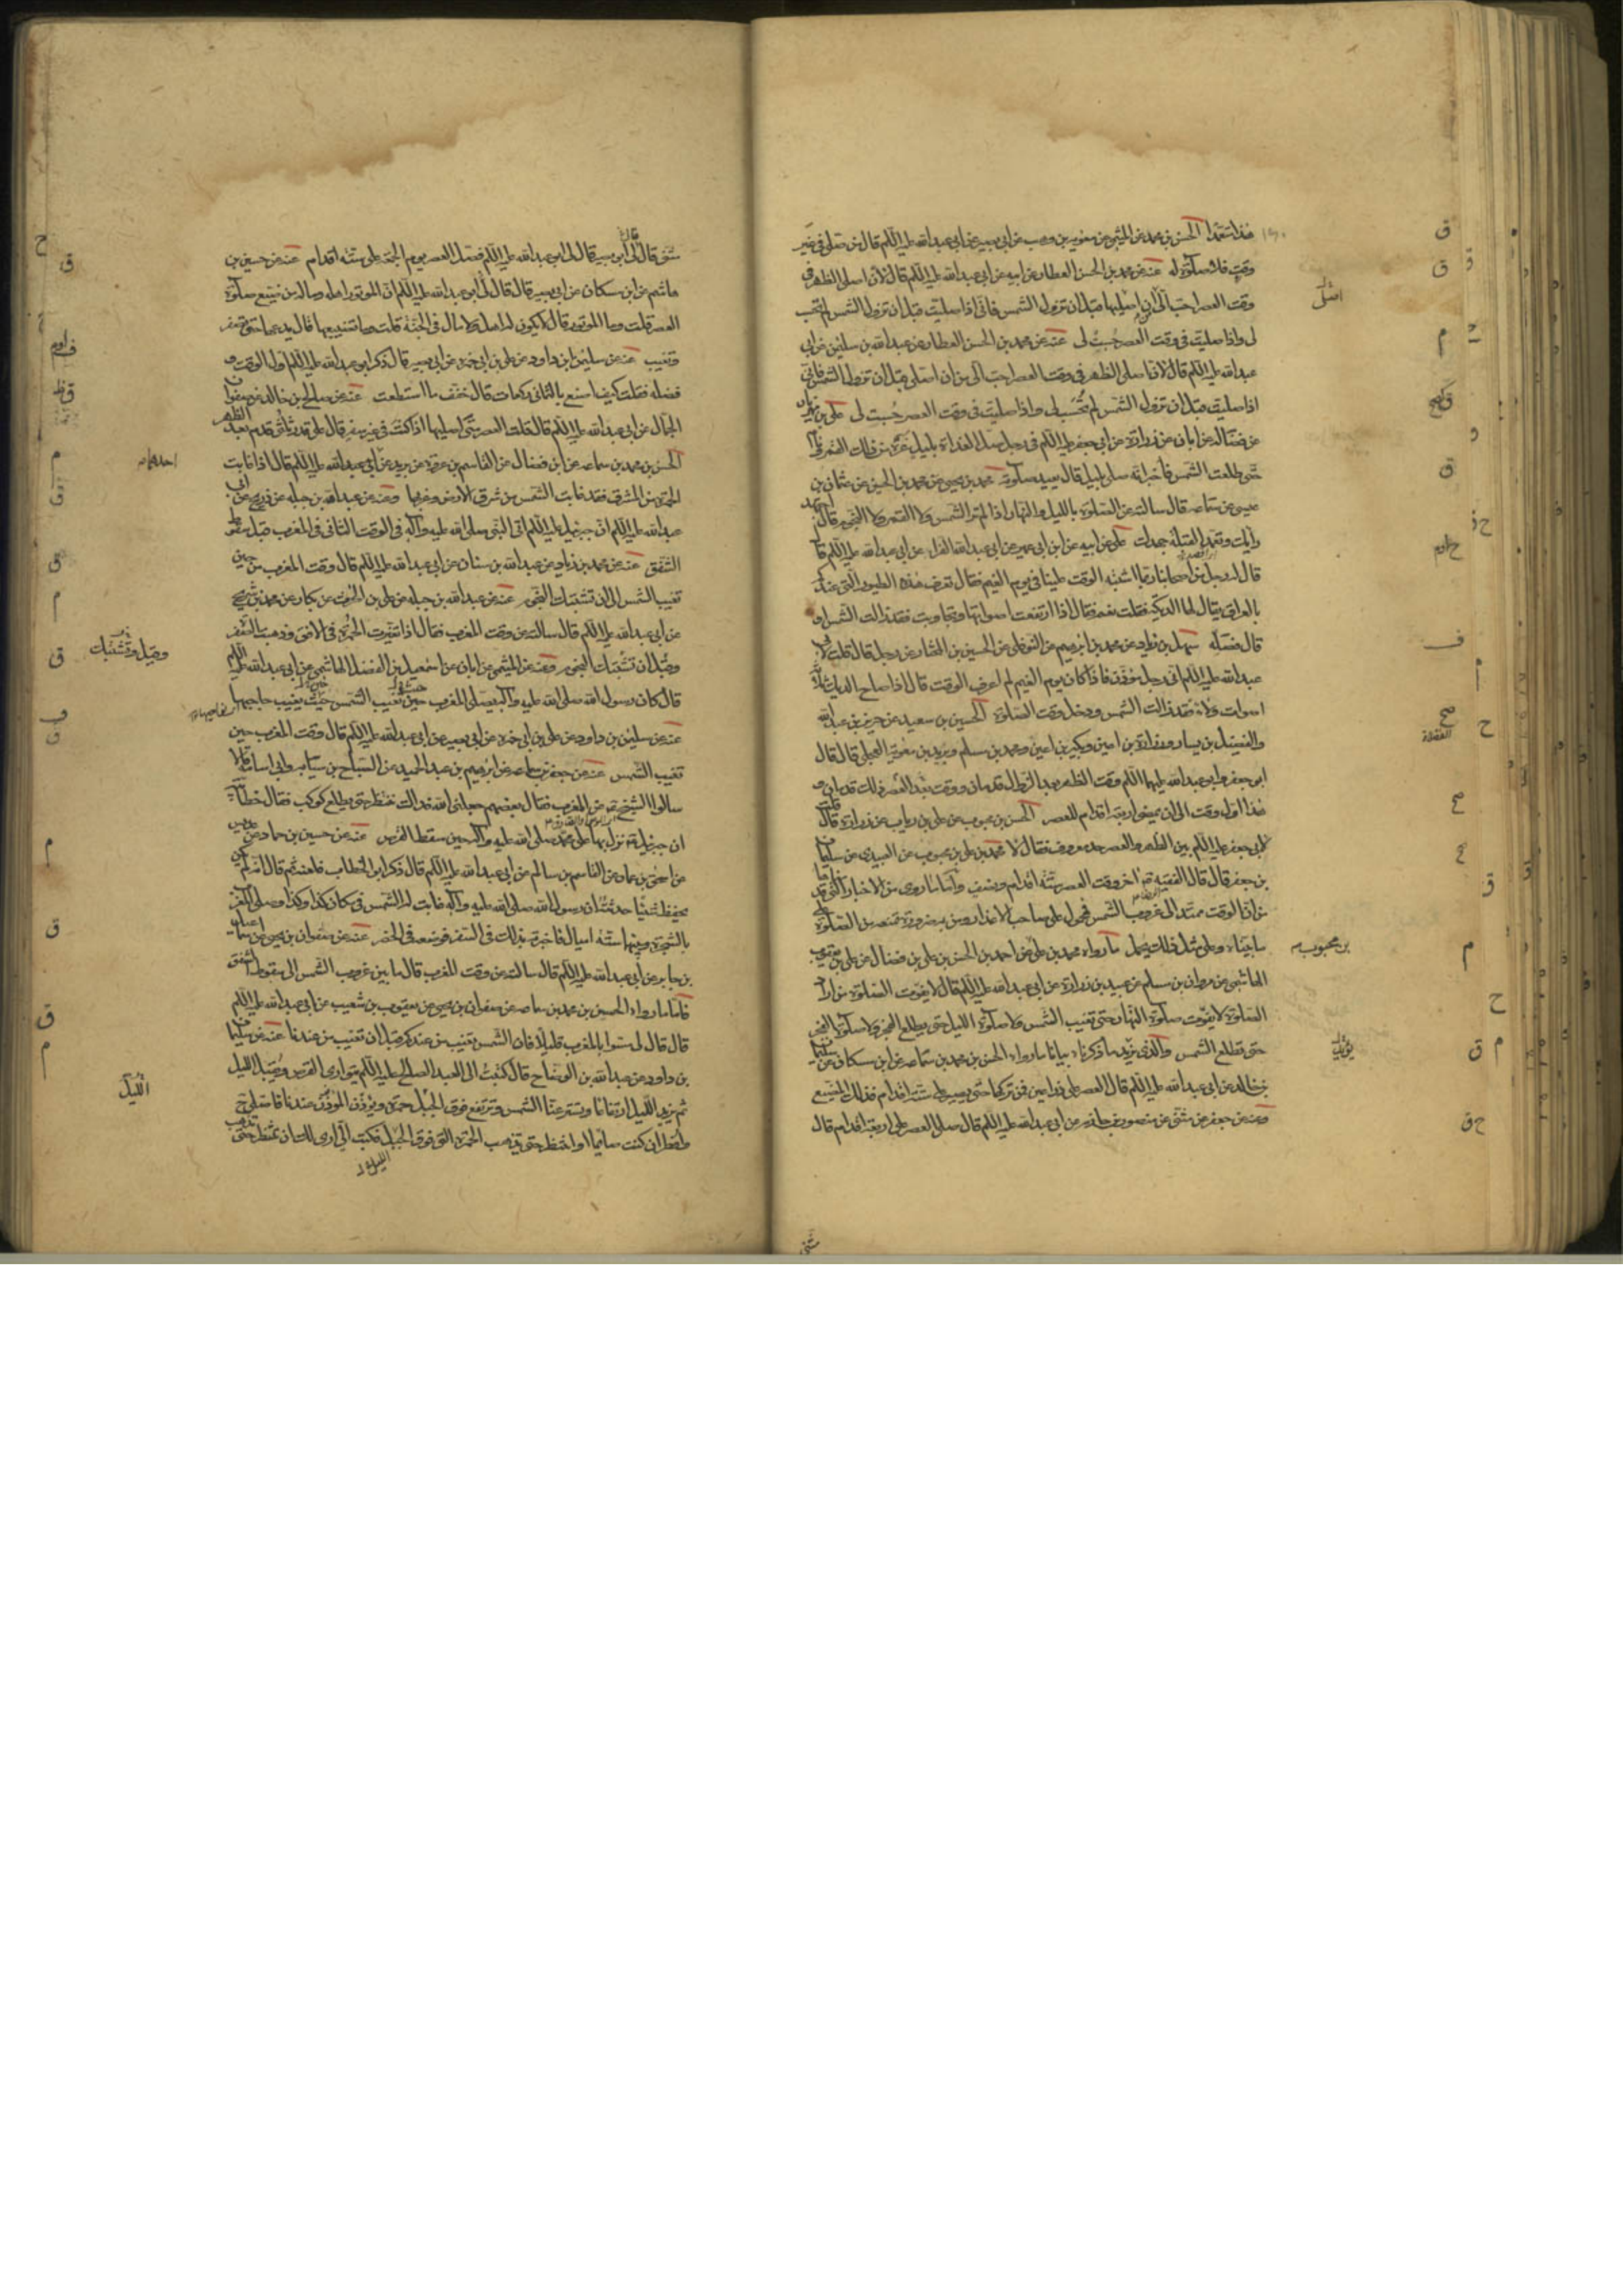 هذا متعمدا الحسن بن محمد عن الميثمي عن معوية بن وهب عن ابي بصير عن ابي عبد الله عليه السلم قال من صلى في غير
وقت فلا صلوة له عنه عن محمد بن الحسن العطار عن ابيه عن ابي عبد الله عليه السلم قال لان اصلى الظهر في
وقت العصر احب الى من ان اصليها قبل ان تزول الشمس فانى اذا صليت قبل ان تزول الشمس لم تحسب
لى واذا صليت في وقت العصر حسبت لى عنه عن محمد بن الحسن العطار عن عبد الله بن سليمن عن ابي
عبد الله عليه السلم قال لان اصلى الظهر في وقت العصر احب الى من ان اصلى قبل ان تزول الشمس فانى
اذا صليت قبل ان تزول الشمس لم تحسب لى واذا صليت في وقت العصر حسبت لى على بن مهزيار
عن فضالة عن ابان عن زرارة عن ابي جعفر عليه السلم في رجل صلى الغداة بليل غره من ذلك القمر ونام
حتى طلعت الشمس فاخبر انه صلى بليل قال يعيد صلوته محمد بن يحيى عن محمد بن الحسين عن عثمان بن
عيسى عن سماعه قال سالته عن الصلوة بالليل والنهار اذا لم تر الشمس ولا القمر ولا النجوم قال اجتهد
رايك وتعمد القبلة جهدك على عن ابيه عن ابن ابي عمير عن ابي عبد الله الفراء عن ابي عبد الله عليه السلم قال
قال له رجل من اصحابنا ربما اشتبه الوقت علينا في يوم الغيم فقال تعرف هذه الطيور التي عندكم
بالعراق يقال لها الديكة فقلت نعم فقال اذا ارتفعت اصواتها وتجاوبت فقد زالت الشمس او
قال فصله سهل بن زياد عن محمد بن ابرهيم عن النوفلى عن الحسين بن المختار عن رجل قال قلت لابي
عبد الله عليه السلم انى رجل مؤذن فاذا كان يوم الغيم لم اعرف الوقت قال اذا صاح الديك ثلثة
اصوات ولاء فقد زالت الشمس ودخل وقت الصلوة الحسين بن سعيد عن حريز بن عبد الله
والفضيل بن يسار وزرارة بن اعين وبكير بن اعين ومحمد بن مسلم وبريد بن معوية العجلى قال قال
ابو جعفر وابو عبد الله عليهما السلم وقت الظهر بعد الزوال قدمان ووقت العصر بعد ذلك قدمان و
هذا اول وقت الى ان يمضى اربعة اقدام للعصر الحسن بن محبوب عن على بن رياب عن زرارة قال قلت
لابي جعفر عليه السلم بين الظهر والعصر حد معروف فقال لا محمد بن على بن محبوب عن العبيدى عن سليمان
بن جعفر قال قال الفقيه اخر وقت العصر ستة اقدام ونصف واما ما روى من الاخبار التي
من ان الوقت ممتد الى غروب الشمس فمحمول على صاحب الاعذار ومن به ضرورة تمنعه من الصلوة
ما بيناه وعلى مثل ذلك يحمل ما رواه محمد بن على عن احمد بن الحسن بن على بن فضال عن على بن يعقوب
الهاشمى عن مروان بن مسلم عن عبيد بن زرارة عن ابي عبد الله عليه السلم قال لا يفوت الصلوة من اراد
الصلوة لا يفوت صلوة النهار حتى تغيب الشمس ولا صلوة الليل حتى يطلع الفجر ولا صلوة الفجر
حتى تطلع الشمس والذى يزيد ما ذكرناه بيانا ما رواه الحسن بن محمد بن سماعه عن ابن مسكان عن سليمان
بن خالد عن ابي عبد الله عليه السلم قال العصر على ذراعين فمن تركها حتى يصير على ستة اقدام فذلك المضيع
وعنه عن جعفر عن مثنى عن منصور بن حازم عن ابي عبد الله عليه السلم قال صل العصر على اربعة اقدام قال
مثنى
اصل
بن محبوب
مثنى قال قال لى ابو بصير قال لى ابو عبد الله عليه السلم صل العصر يوم الجمعة على ستة اقدام عنه عن حسين بن
هاشم عن ابن مسكان عن ابي بصير قال قال لى ابو عبد الله عليه السلم ان الموتور اهله وماله من ضيع صلوة
العصر قلت وما الموتور قال لا يكون له اهل ولا مال في الجنة قلت وما تضييعها قال يدعها حتى تصفر
وتغيب عنه عن سليمن بن داود عن على بن ابي حمزه عن ابي بصير قال ذكر ابو عبد الله عليه السلم اول الوقت و
فضله فقلت كيف اصنع بالثمانى ركعات قال خفف ما استطعت عنه عن صالح بن خالد عن صفوان
الجمال عن ابي عبد الله عليه السلم قال قلت العصر متى اصليها اذا كنت في غير سفر قال على قدر ثلثى قدم بعد الظهر
الحسن بن محمد بن سماعه عن ابن فضال عن القاسم بن عروة عن بريد عن ابي عبد الله عليه السلم قال اذا غابت
الحمرة من المشرق فقد غابت الشمس من شرق الارض وغربها وعنه عن عبد الله بن جبله عن ذريح عن ابي
عبد الله عليه السلم ان جبرئيل عليه السلم اتى النبي صلى الله عليه وآله في الوقت الثانى في المغرب قبل سقوط
الشفق عنه عن محمد بن زياد عن عبد الله بن سنان عن ابي عبد الله عليه السلم قال وقت المغرب من حين
تغيب الشمس الى ان تشتبك النجوم عنه عن عبد الله بن جبله عن على بن الحرث عن بكار عن محمد بن شريح
عن ابي عبد الله عليه السلم قال سالته عن وقت المغرب فقال اذا تغيرت الحمرة في الافق وذهبت الصفرة
وقبل ان تشتبك النجوم وعنه عن الميثمى عن ابان عن اسمعيل بن الفضل الهاشمى عن ابي عبد الله عليه السلم
قال كان رسول الله صلى الله عليه وآله يصلى المغرب حين تغيب الشمس حيث يغيب حاجبها
عنه عن سليمن بن داود عن على بن ابي حمزه عن ابي بصير عن ابي عبد الله عليه السلم قال وقت المغرب حين
تغيب الشمس عنه عن جعفر بن سماعه عن ابرهيم بن عبد الحميد عن الصباح بن سيابه وابي اسامة قالا
سالوا الشيخ عن المغرب فقال بعضهم جعلنى الله فداك ننتظر حتى يطلع كوكب فقال خطابية
ان جبرئيل نزل بها على محمد صلى الله عليه وآله حين سقط القرص عنه عن حسين بن حماد بن عديس
عن اسحق بن عمار عن القاسم بن سالم عن ابي عبد الله عليه السلم قال ذكر ابو الخطاب فلعنه ثم قال انه لم يكن
يحفظ شيئا حدثته ان رسول الله صلى الله عليه وآله غابت له الشمس في مكان كذا وكذا وصلى المغرب
بالشجرة وبينهما ستة اميال فاخبرته بذلك في السفر فوضعه في الحضر عنه عن صفوان بن يحيى عن اسماعيل
بن جابر عن ابي عبد الله عليه السلم قال سالته عن وقت المغرب قال ما بين غروب الشمس الى سقوط الشفق
فاما ما رواه الحسين بن محمد بن سماعه عن صفوان بن يحيى عن يعقوب بن شعيب عن ابي عبد الله عليه السلم
قال قال لى مسوا بالمغرب قليلا فان الشمس تغيب من عندكم قبل ان تغيب من عندنا عنه عن سليمان
بن داود عن عبد الله بن الوضاح قال كتبت الى العبد الصالح عليه السلم يتوارى القرص ويقبل الليل
ثم يزيد الليل ارتفاعا وتستتر عنا الشمس وترتفع فوق الجبل حمرة ويؤذن المؤذن عندنا فاصلى ح
وافطر ان كنت صائما او انتظر حتى تذهب الحمرة التي فوق الجبل فكتب الى ارى لك ان تنتظر حتى تذهب
احدهما
وقبل وتشتبك
الليل